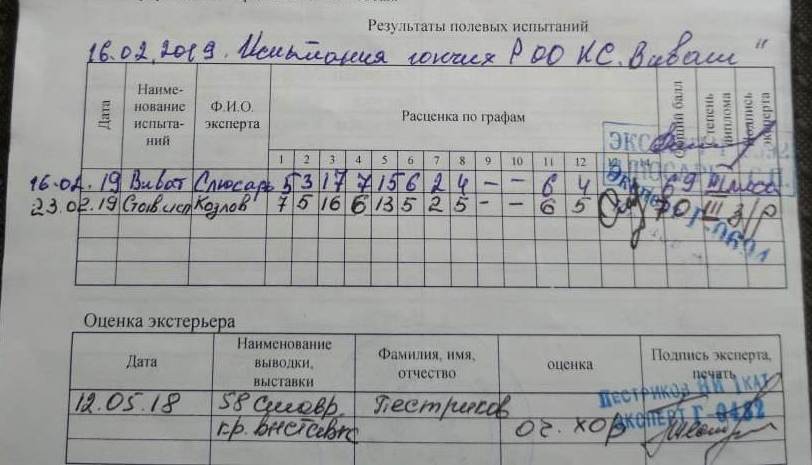 Результаты полевых испытаний
16.02.2019. Испытания гончих РОО КС. Виват"
Дата Наиме-нование испыта-ний Ф.И.О. эксперта Расценка по графам Общий балл степень диплома Подпись эксперта
1 2 3 4 5 6 7 8 9 10 11 12
16.02.19 Виват Слюсарь 5 3 17 7 15 6 2 4 - - 6 4 69 III
23.02.19 Козлов 7 5 16 6 13 5 2 5 - - 6 5 70 III
Оценка экстерьера
Дата Наименование выводки, выставки Фамилия, имя, отчество оценка Подпись эксперта, печать
12.05.18 58 Ставр. Пестриков ПЕСТРИКОВ НИ 1КАТ
кр. выставк оч. хор ЭКСПЕРТ Г-0482